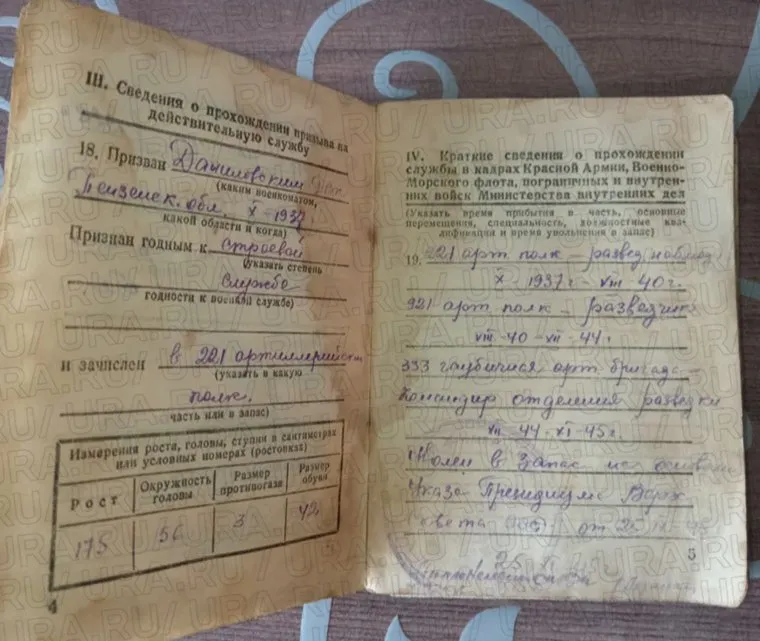 III. Сведения о прохождении призыва на
действительную службу
18. Призван Даниловским
(каким военкоматом,
Пензенск. обл. X-1937
какой области и когда)
Признан годным к строевой
(указать степень
службе
годности к военной службе)
и зачислен в 221 артиллерийский
(указать в какую
полк.
часть или в запас)
Измерения роста, головы, ступни в сантиметрах
или условных номерах (ростовках)
Рост
Окружность головы
Размер противогаза
Размер обуви
175
56
3
42
4
IV. Краткие сведения о прохождении
службы в кадрах Красной Армии, Военно-
Морского флота, пограничных и внутрен-
них войск Министерства внутренних дел
(Указать время прибытия в часть, основные
перемещения, специальность, должностные ква-
лификации и время увольнения в запас)
19. 221 арт полк – развед
X-1937г - VIII-40г.
921 арт полк – разведчик
VIII-40 - VII-44г.
333 гаубичная арт бригада –
Командир отделения разведки
VII-44-XI-45г.
Уволен в запас на основании
Указа Президиума Верх
Совета от 25
5
URA.RU